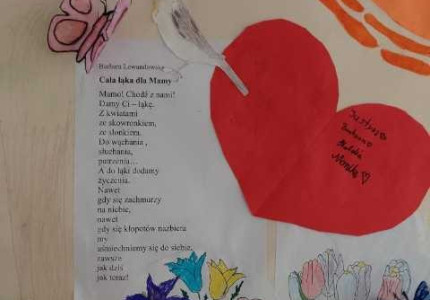 Barbara Lewandowska
Cała łąka dla Mamy
Mamo! Chodź z nami!
Damy Ci – łąkę.
Z kwiatami
ze skowronkiem,
ze słonkiem.
Do wąchania ,
słuchania,
patrzenia…
A do łąki dodamy
życzenia.
Nawet
gdy się zachmurzy
na niebie,
nawet
gdy się kłopotów nazbiera
my
uśmiechniemy się do siebie,
zawsze
jak dziś
jak teraz!
Natalia
Monika